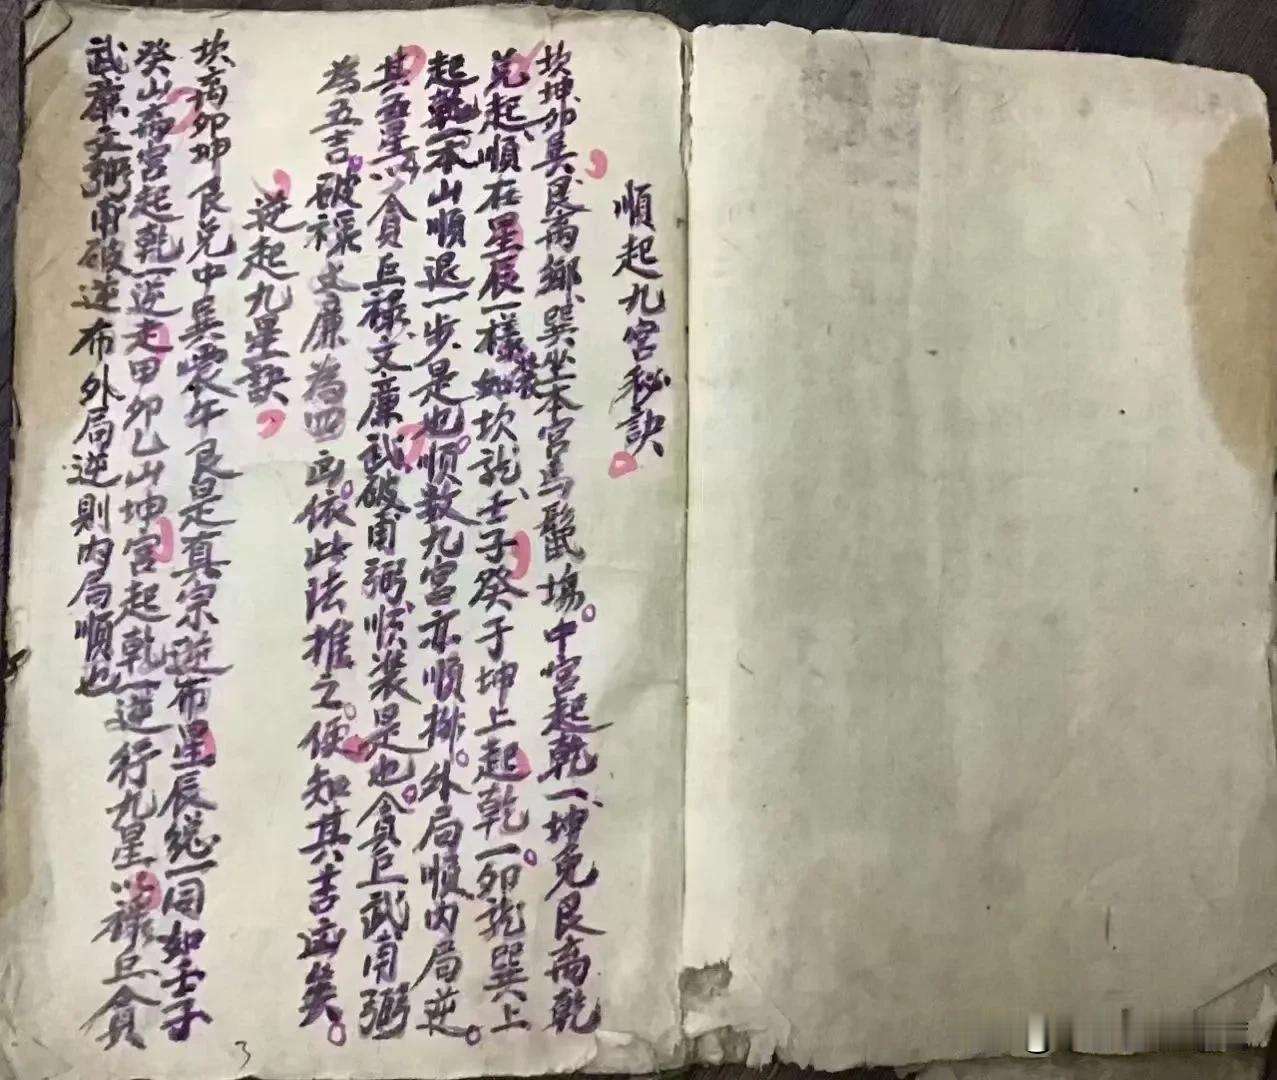 順起九宮秘訣
坎坤卯巽艮离鄉巽坐本宮馬鬣塲中宮起乾一坤兌艮离乾
兌起順在星辰一樣裝如坎龙壬子癸于坤上起乾一卯龙巽上
起乾一本山順退一步是也順数九宮亦順排外局順内局逆
其吾星以貪巨禄文廉武破甫弼順装是也貪巨武甫弼
為五吉破禄文廉為四凶依此法推之便知其吉凶矣
逆起九星訣
坎离卯坤艮兌中巽震午艮是真宗逆布星辰总一同如壬子
癸山离宮起乾一逆走甲卯乙山坤宮起乾一逆行九星以禄巨貪
武廉文弼甫破逆布外局逆則内局順也
3